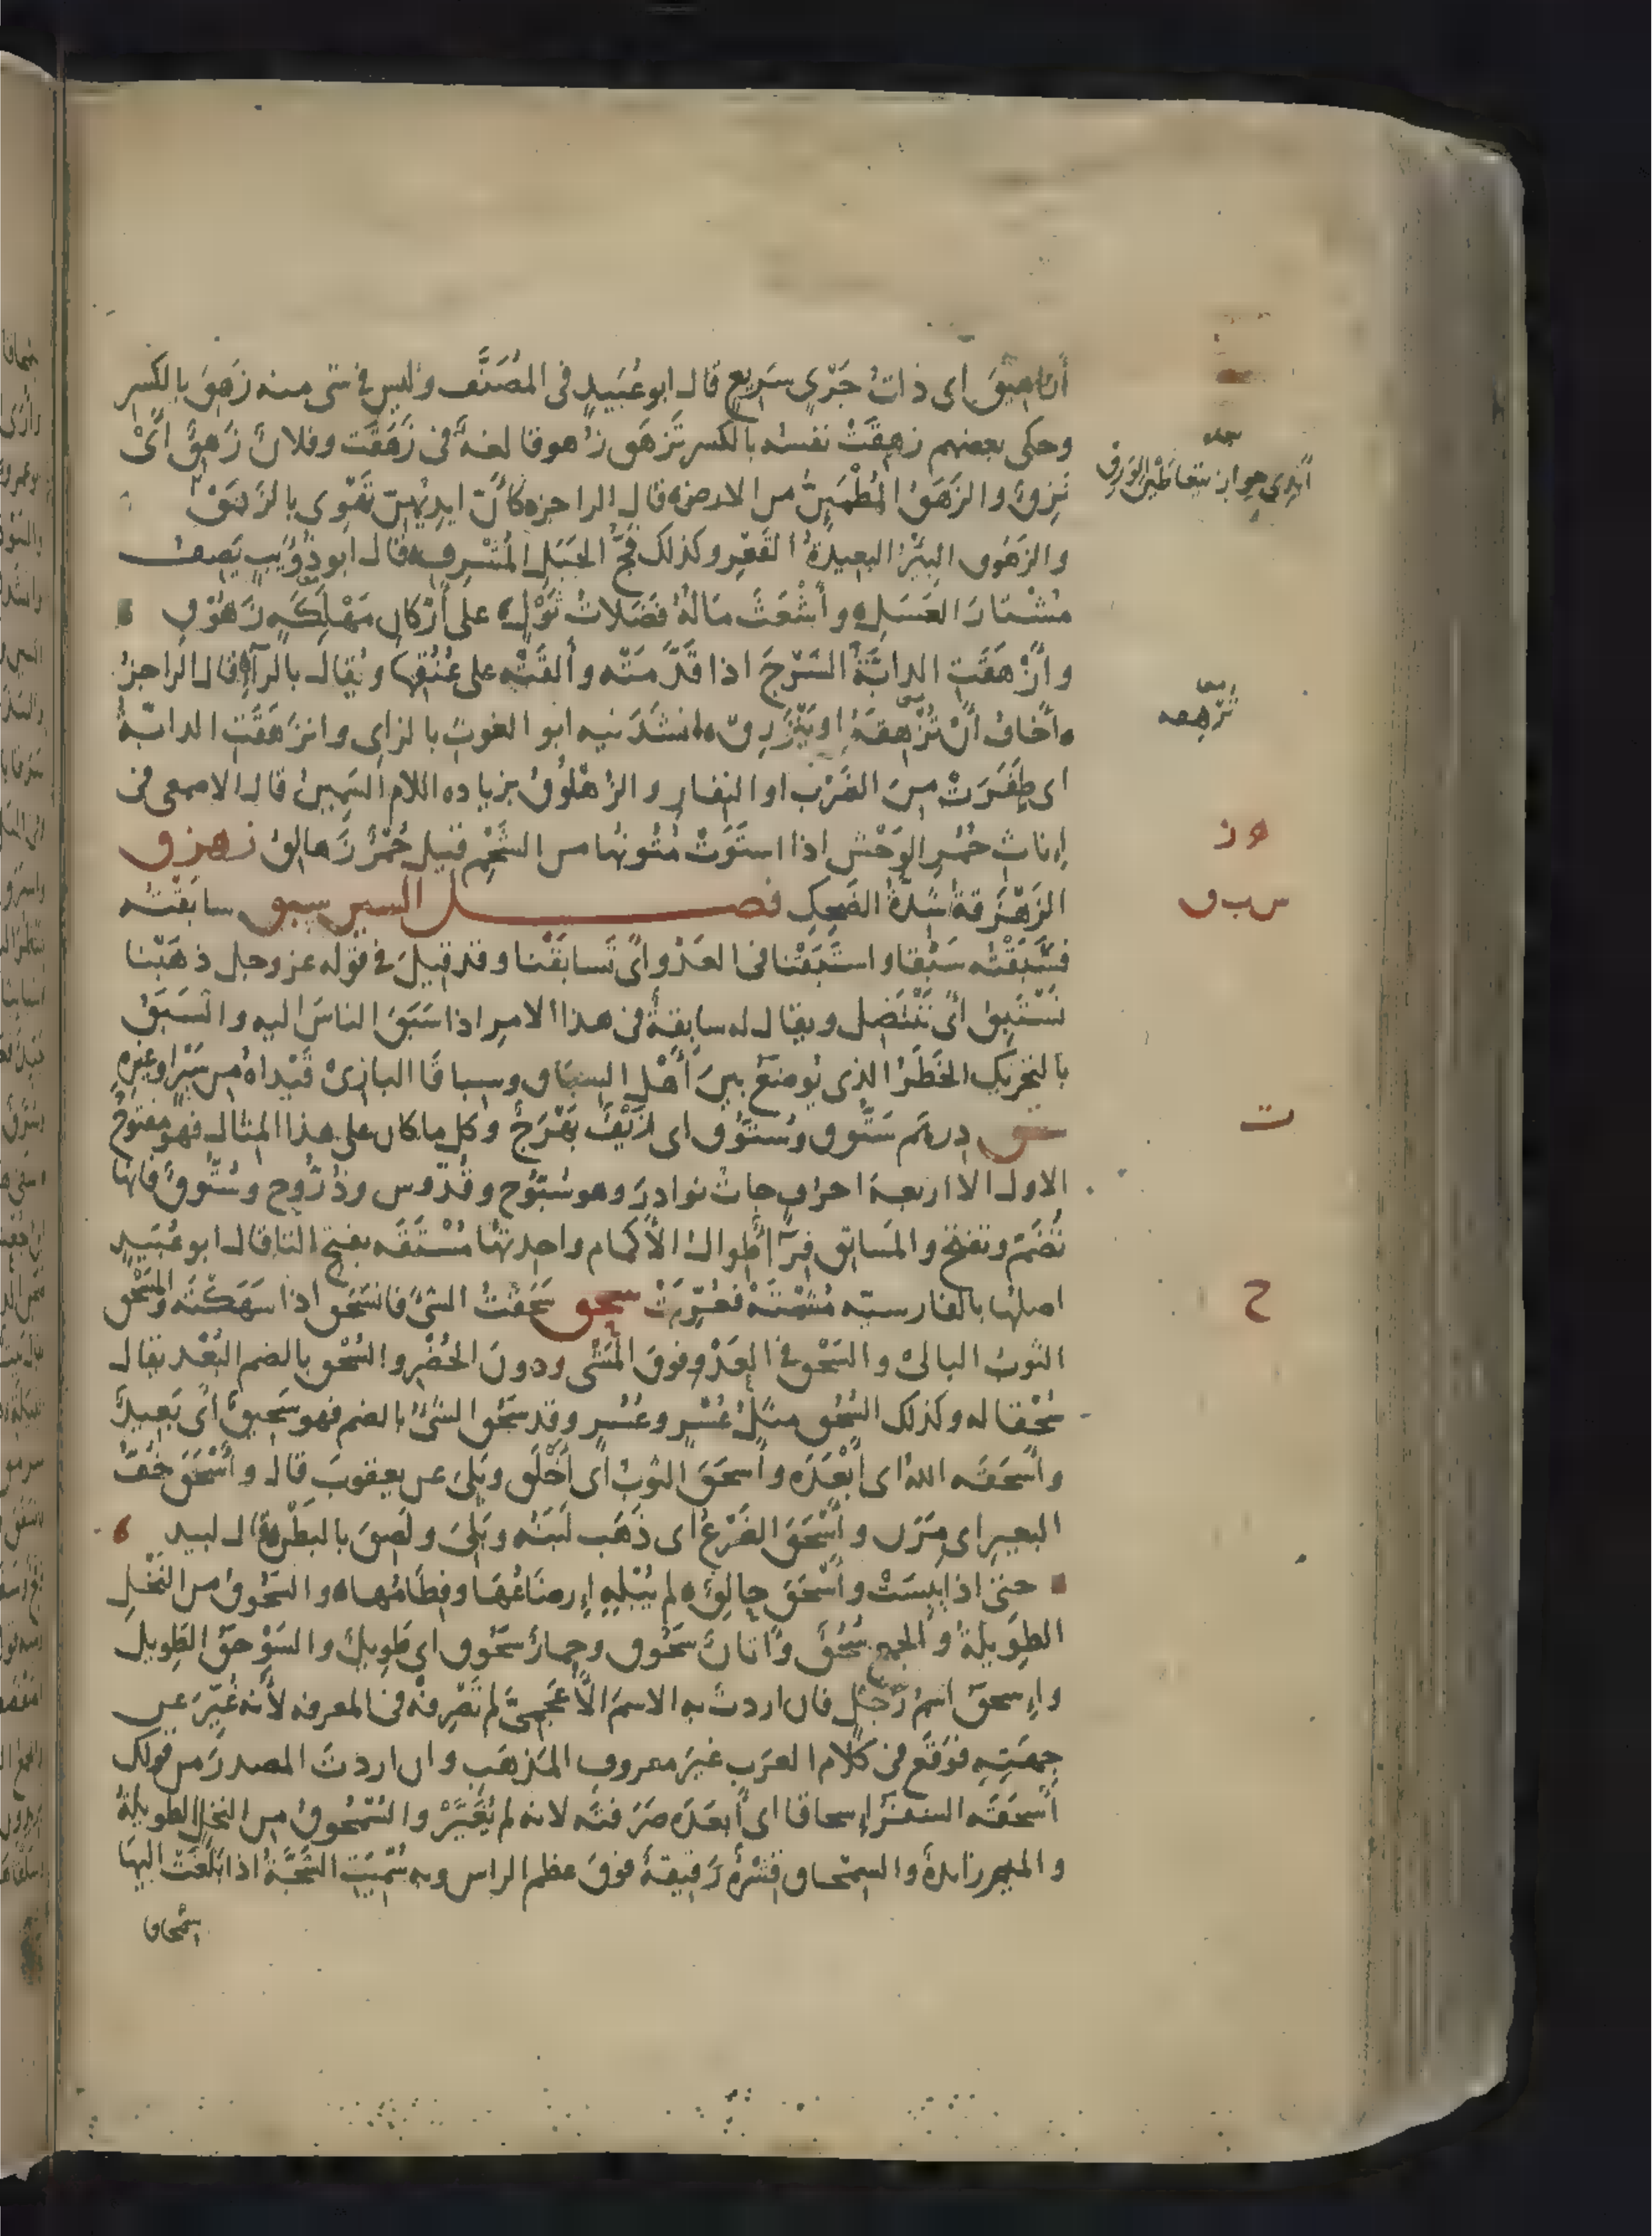 أزاهيق اى ذات جَرْىٍ سَرِيعٍ قال ابو عُبَيدٍ فى المُصَنَّف وليس فى شى منه زَهِقَ بالكسر
وحكى بعضهم زهِقَتْ نفسُه بالكسر تَزهَق زُهوقا لغةٌ فى زَهَقَت وفلانٌ زَهِقٌ اَىْ
نَزِقٌ والزَهَقُ المُطْمَئِنُّ من الارض قال الراجز كأنّ ايديهِنّ تَهْوِى بالزَهَقْ
والزَهوق البِئرُ البعيدةُ القَعْرِ وكذلك فَجُّ الجَبَلِ المُشْرِف قال ابو ذُؤَيبٍ يَصِف
مُشْتارَ العَسَلِ وأَشْعَثَ مَالُهُ فَضَلاتُ ثَوْلٍ على أَرْكانِ مَهْلَكَةٍ زَهُوْقِ
وأَزْهَقَتِ الدابَّةُ السَرْجَ اذا قَدَّمَتْه وأَلقَتْه على عُنُقِها ويُقال بالرآء قال الراجز
أَخافُ أَنْ تُزْهِقَهُ او يَنْزَرِقْ انشَدَنيه ابو الغوث بالزاى وانزَهَقَتِ الدابّةُ
اى طَفَرَتْ مِنَ الضَرْب او النِفارِ والزُهْلُوقُ بزياده اللام السَمِينُ قال الاصمعى فى
إناثِ حُمُرِ الوَحْش اذا استَوَتْ مُتُونُها من الشَحْمِ قيل حُمُرٌ زَهالِقُ زهزق
الزَهْزَقةُ شِدّةُ الضَحِكِ فصل السين سبق سابَقْتُه
فسَبَقْتُه سَبْقا واستَبَقْنا فى العَدْوِ اَىْ تَسابَقْنا وقد قيلَ فى قوله عز وجل ذهَبْنا
نَسْتَبِقُ اَىْ نَنْتَضِل ويقال له سابِقةٌ فى هذا الامرِ اذا سَبَقَ الناسَ اليه والسَبَقُ
بالتحريك الخَطَرُ الذى يُوضَعُ بينَ أَهْلِ السِباق وسِباقَا البازِىْ قَيْداهُ من سَيْرٍ او غيرِهِ
ستق درهَم سَتُّوق وسُتُّوق اى زَيْفٌ بَهْرَجٌ وكل ما كان على هذا المثال فهو مفتوحُ
الاول الا اربعة احرف جاءت نوادِرَ وهو سُبُّوح وقُدُّوس وذُرُّوح وسُتُّوقٌ فانها
تُضَمّ وتفتح والمَساتِق فِرآءٌ طِوال الأكمام واحدتُها مُسْتَقَه بفتح التا قال ابو عُبَيدٍ
اصلها بالفارسيّه مُشْتَهْ فعُرِّبَتْ سحق سَحَقْتُ الشئَ فانسَحَق اذا سَهَكْتَه والسَحْق
الثوبُ البالىْ والسَحْق فى العَدْوِ فوقَ المَشْى ودونَ الحُضْرِ والسُحْق بالضم البُعْد يقال
سُحْقا له وكذلك السُحُق مثلُ عُسْر وعُسُر وقد سَحُق الشئُ بالضم فهو سَحِيقٌ اَىْ بَعِيدٌ
وأسحَقَه اللهُ اى أَبْعَدَه وأَسحَقَ الثوبُ اى أَخْلَق وبَلِىَ عن يعقوبَ قال وأَسْحَقَ خُفُّ
البعيرِ اى مَرَن وأَسْحَقَ الضَرْعُ اى ذَهَب لَبَنُه وبَلِىَ ولَصِقَ بالبَطْن قال لبيد
حتى اذا يبِسَتْ وأَسْحَقَ حالِقٌ لم يُبْلِهِ إرضاعُها وفِطامُها والسَحُوقُ من النَخْلِ
الطَوِيلةُ والجمع سُحُقٌ وأَتانٌ سَحُوق وحِمارٌ سَحُوق اى طَوِيلٌ والسَوْحَقُ الطَوِيل
وإسحقُ اسمُ رَجُلٍ فان اردتَ به الاسمَ الأَعْجَمِىَّ لم تَصْرِفْه فى المعرفه لأنه غُيِّرَ عن
جِهَتِهِ فوَقَع فى كلام العرَبِ غيرَ معروفِ المَذهَبِ وان اردتَ المصدرَ من قولك
أسحَقَه السفَرُ إسحاقا اى أبعَدَه صَرَفتَه لانه لم يُغَيَّرْ والسُمْحُوقُ من النخل الطويلةُ
والميم زايدةٌ والسِمْحاق قِشْرةٌ رَقِيقةٌ فوقَ عظم الراس وبه سُمِّيَتِ الشَجَّةُ اذا بَلَغَتْ اليها
سِمْحاق
أَيدى جوارٍ يتعاطَيْنَ الوَرِقْ
تُرْهِقه
ه ز
س ب ق
ت
ح